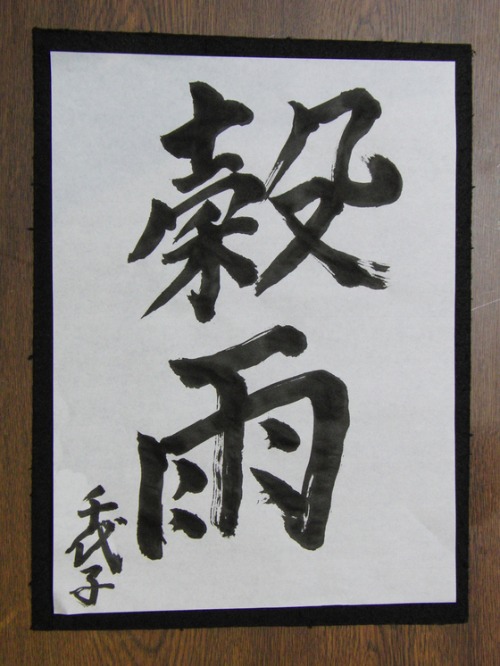 穀雨
千代子